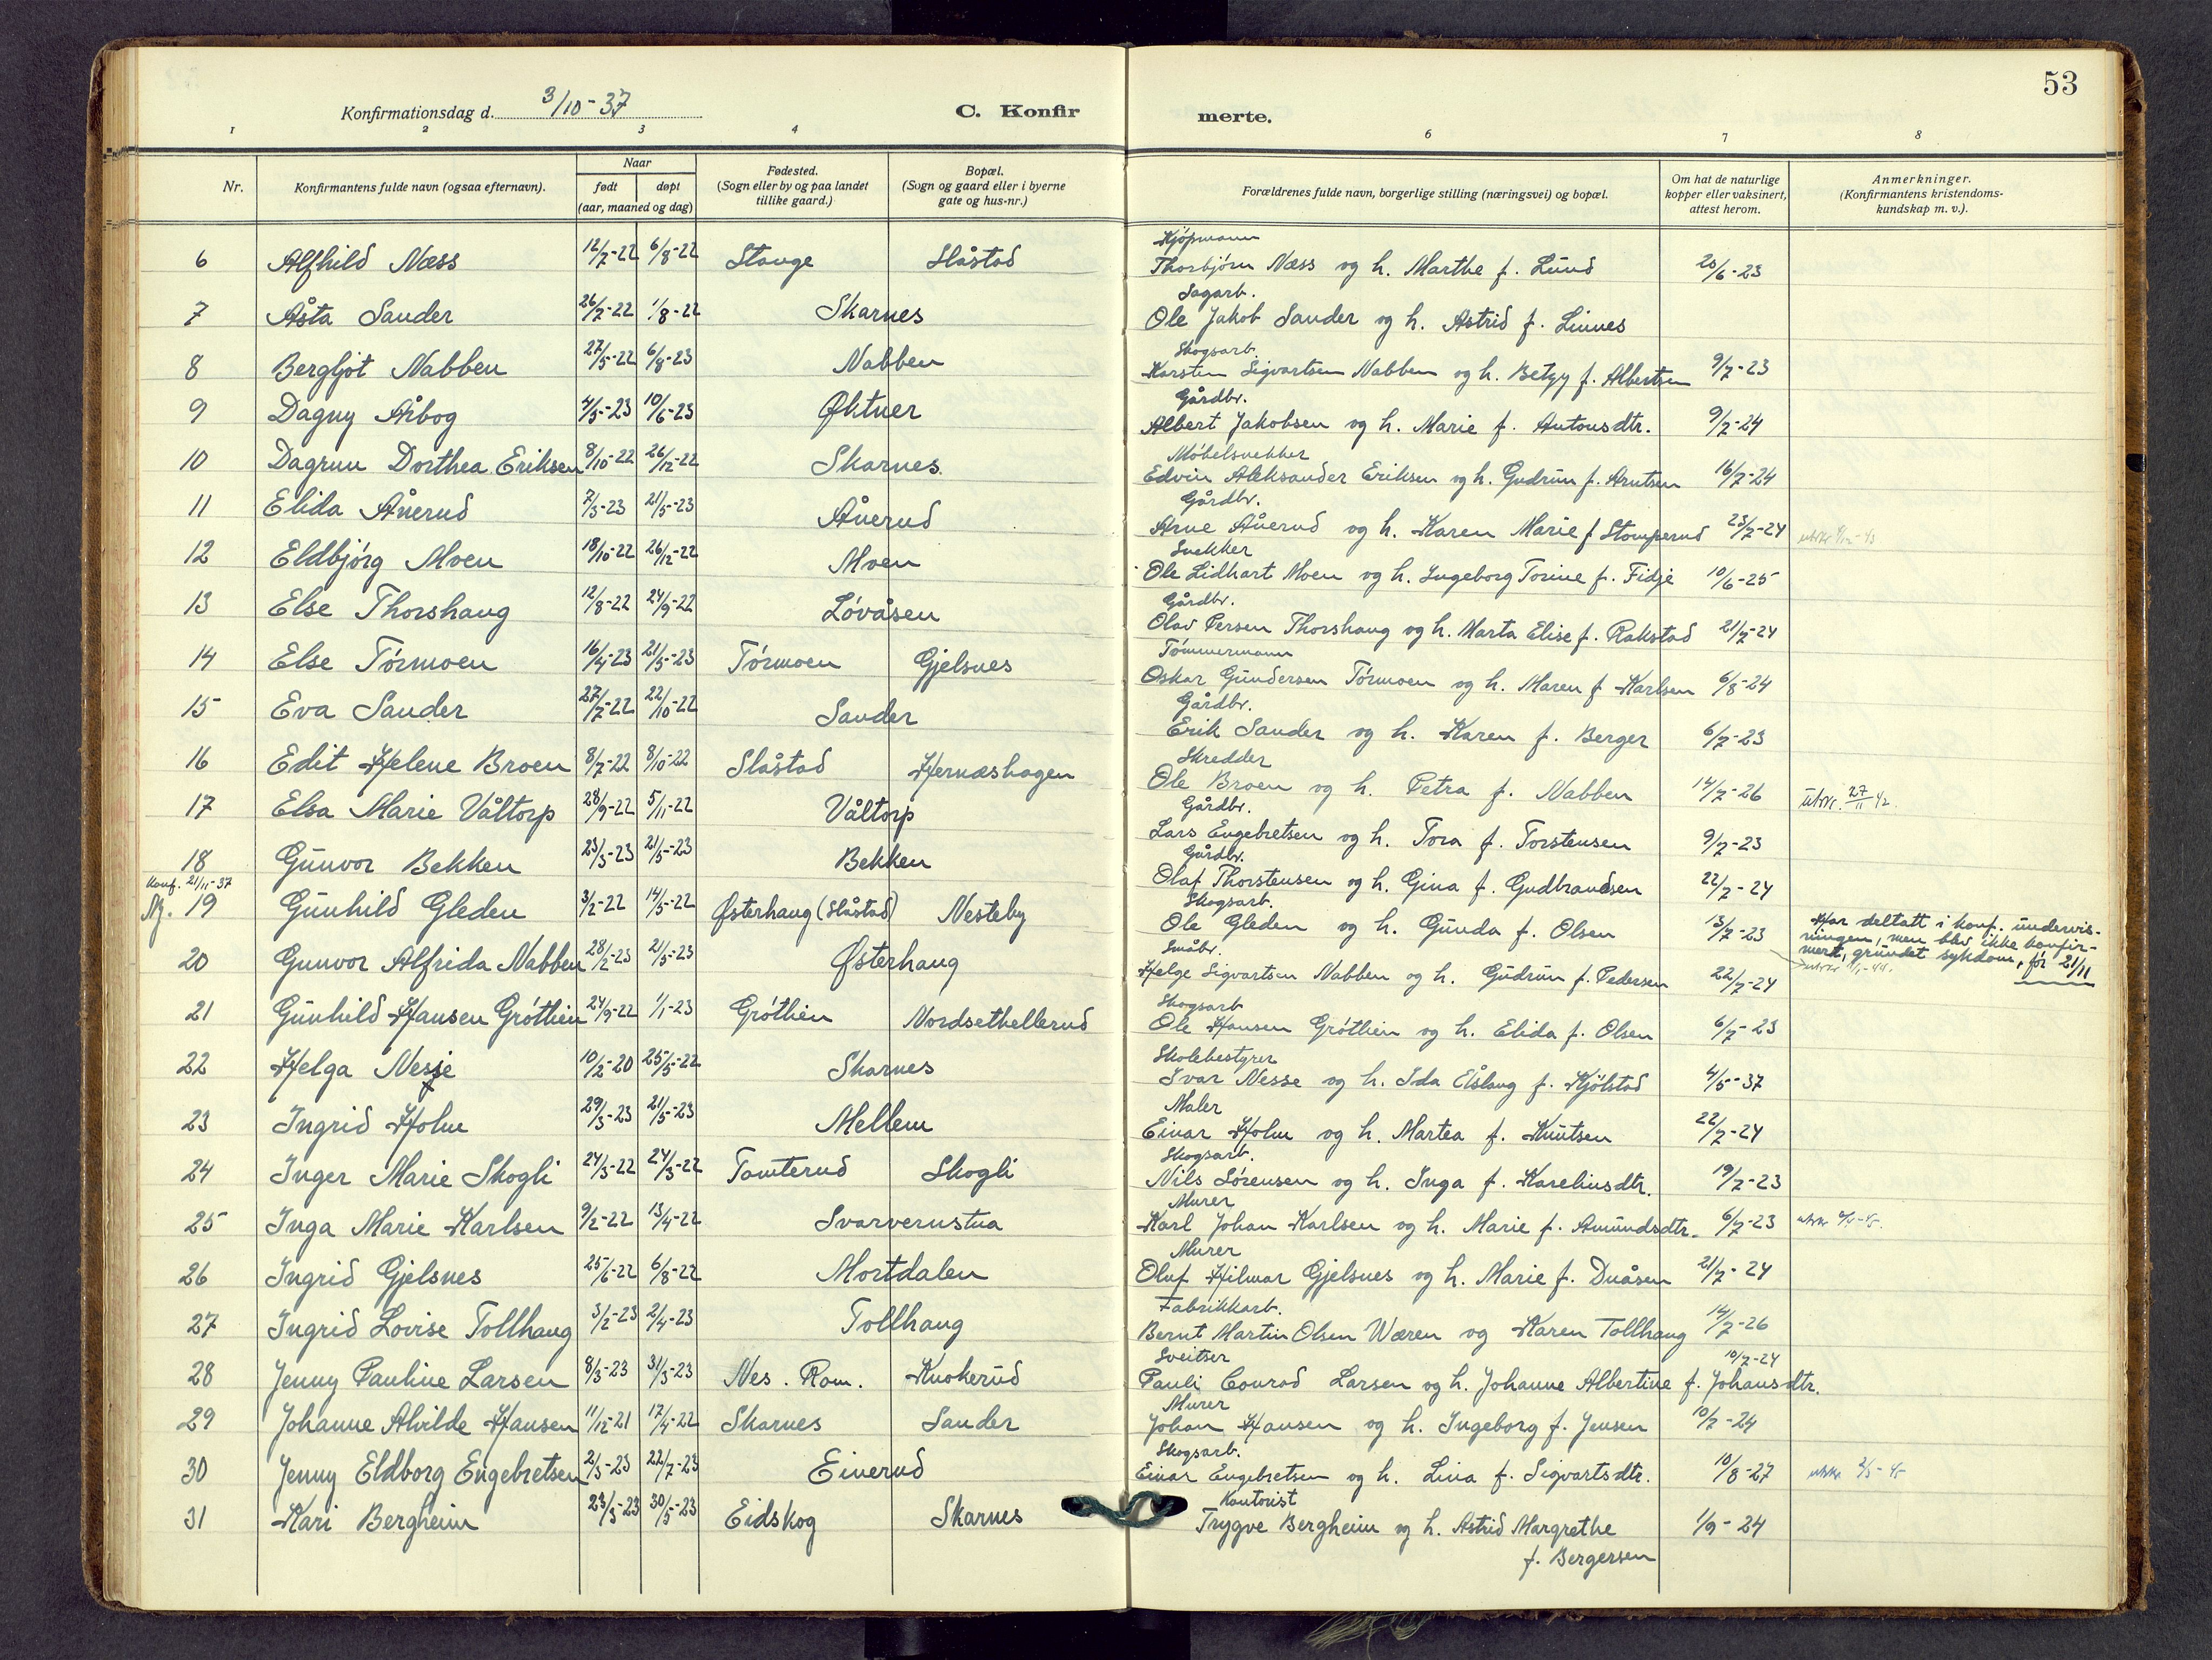 53
Konfirmationsdag d. 3/10-37 C. Konfir merte.
1 2 3 4 6 7 8
Nr. Konfirmantens fulde navn (ogsaa efternavn). Naar født døpt (aar, maaned og dag) Fødested. (Sogn eller by og paa landet tillike gaard.) Bopæl. (Sogn og gaard eller i byerne gate og hus-nr.) Forældrenes fulde navn, borgerlige stilling (næringsvei) og bopæl. Om hat de naturlige kopper eller vaksinert, attest herom. Anmerkninger. (Konfirmantens kristendoms-kundskap m. v.).
Kjøpmann
6 Alfhild Næss 12/7-22 6/8-22 Stange Slåstad Thorbjørn Næss og h. Marthe f. Lund 20/6-23
Sagarb.
7 Åsta Sander 26/7-22 1/8-22 Skarnes Ole Jakob Sander og h. Astrid f. Linnes
Skogsarb.
8 Bergljot Nabben 27/5-22 6/8-23 Nabben Karsten Sigvartsen Nabben og h. Betzy f. Albertsen 9/7-23
Gårdbr.
9 Dagny Årbog 4/5-23 10/6-23 Øktner Albert Jakobsen og h. Marie f. Antonsdtr. 9/7-24
Møbelsnekker
10 Dagrun Dorthea Eriksen 8/10-22 26/12-22 Skarnes. Edvin Aleksander Eriksen og h. Gudrun f. Arntsen 16/7-24
Gårdbr.
11 Elida Ånerud 7/3-23 21/5-23 Ånerud Arne Ånerud og h. Karen Marie f Stomperud 23/7-24
Snekker
12 Eldbjørg Moen 18/10-22 26/12-22 Moen Ole Lidhart Moen og h. Ingeborg Torine f. Fidje 10/6-25
Gårdbr.
13 Else Thorshaug 12/8-22 24/9-22 Løvåsen Olav Persen Thorshaug og h. Marta Elise f. Rakstad 21/7-24
Tømmermann
14 Else Tørmoen 16/4-23 21/5-23 Tørmoen Gjelsnes Oskar Gundersen Tørmoen og h. Maren f Karlsen 6/8-24
Gårdbr.
15 Eva Sander 27/7-22 22/10-22 Sander Erik Sander og h. Karen f. Berger 6/7-23
Skredder
16 Edit Helene Broen 8/7-22 8/10-22 Slåstad Hernæshagen Ole Broen og h. Petra f. Nabben 14/7-26 utskr. 27/11 42.
Gårdbr.
17 Elsa Marie Våltorp 28/9-22 5/11-22 Våltorp Lars Engebretsen og h. Tora f. Torstensen 9/7-23
Gårdbr.
18 Gunvor Bekken 23/3-23 21/5-23 Bekken Olaf Thorstensen og h. Gina f. Gudbrandsen 22/7-24
Konf. 21/11-37
Skogsarb.
19 Gunhild Gleden 3/2-22 14/5-22 Østerhaug (Slåstad) Nesteby Ole Gleden og h. Gunda f. Olsen 13/7-23 Har deltatt i konf. undervis-
ningen, men blev ikke konfir-
mert, grundet sykdom, før 21/11
Småbr.
20 Gunvor Alfrida Nabben 28/2-23 21/5-23 Østerhaug Helge Sigvartsen Nabben og h. Gudrun f. Pedersen 22/7-24
Skogsarb
21 Gunhild Hansen Grøthien 24/9-22 1/1-23 Grøthien Nordsethellerud Ole Hansen Grøthien og h. Elida f. Olsen 6/7-23
Skolebestyrer
22 Helga Nesse 10/2-20 25/5-22 Skarnes Ivar Nesse og h. Ida Eslaug f. Kjølstad 4/5-37
Maler
23 Ingrid Holm 29/3-23 21/5-23 Mellem Einar Holm og h. Martea f. Knutsen 22/7-24
Skogsarb.
24 Inger Marie Skogli 24/3-22 24/3-22 Tomterud Skogli Nils Sørensen og h. Inga f. Kareliusdtr. 19/7-23
Murer
25 Inga Marie Karlsen 9/2-22 13/4-22 Svarverustua Karl Johan Karlsen og h. Marie f. Amundsdtr. 6/7-23
Murer
26 Ingrid Gjelsnes 25/6-22 6/8-22 Mortdalen Oluf Hilmar Gjelsnes og h. Marie f. Duåsen 21/7-24
Fabrikkarb.
27 Ingrid Lovise Tollhaug 3/2-23 2/4-23 Tollhaug Bernt Martin Olsen Wæren og Karen Tollhaug 14/7-26
Sveitser
28 Jenny Pauline Larsen 8/3-23 31/3-23 Nes. Rom. Knokerud Pauli Conrad Larsen og h. Johanne Albertine f. Johansdtr. 10/7-24
Murer
29 Johanne Alvilde Hansen 11/12-21 17/4-22 Skarnes Sander Johan Hansen og h. Ingeborg f. Jensen 10/7-24
Skogsarb.
30 Jenny Eldborg Engebretsen 2/3-23 22/7-23 Einerud Einar Engebretsen og h. Lina f. Sigvartsdtr. 10/8-27
Kontorist
31 Kari Bergheim 23/3-23 30/5-23 Eidskog Skarnes Trygve Bergheim og h. Astrid Margrethe 1/9-24
f. Bergersen